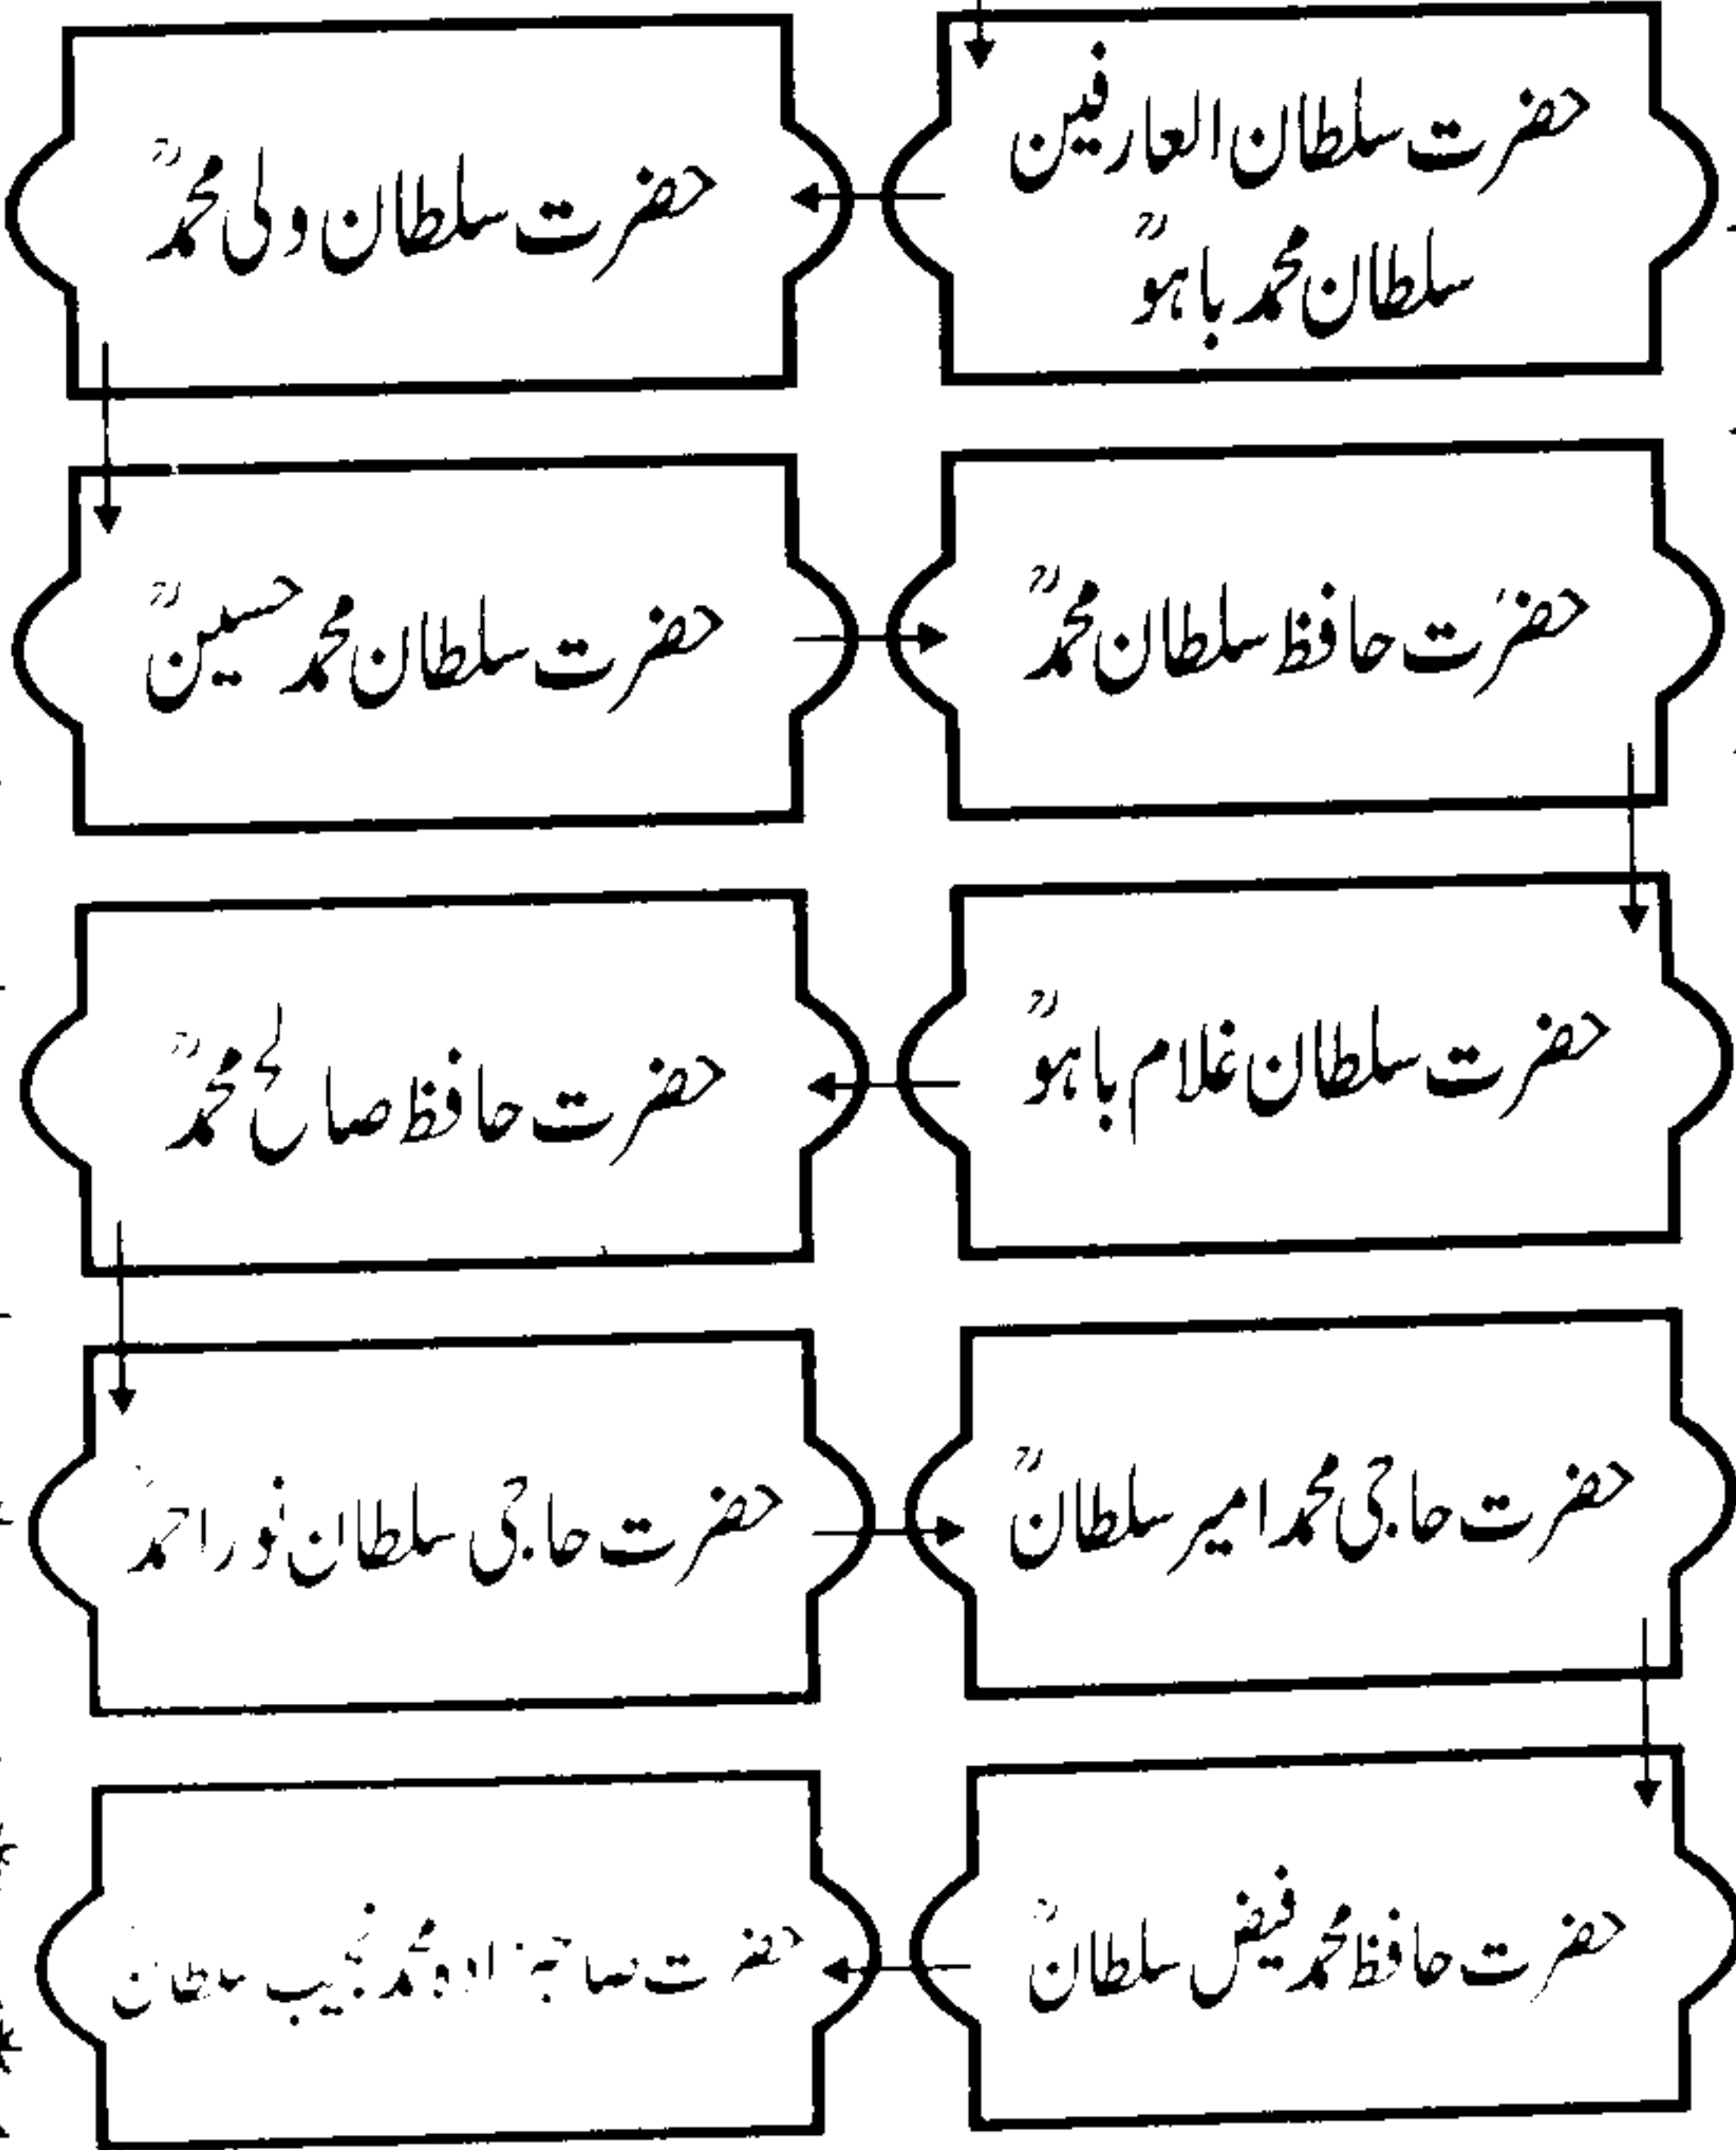 حضرت سلطان العارفین
سلطان محمد باہوؒ
حضرت سلطان ولی محمدؒ
حضرت سلطان محمد حسینؒ
حضرت حافظ سلطان محمدؒ
حضرت سلطان غلام باہوؒ
حضرت حافظ صالح محمدؒ
حضرت حاجی سلطان نور احمد
حضرت حاجی محمد امیر سلطانؒ
حضرت حافظ محمد فیض سلطانؒ
حضرت صاحبزادہ محمد نجیب سلطان